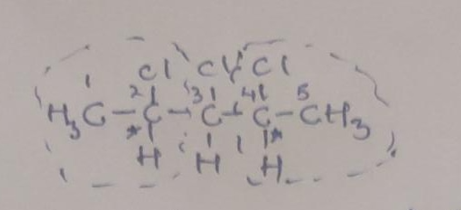 1 Cl Cl Cl
2 3 4 5
H₃C-C-C-C-CH₃
* *
H H H